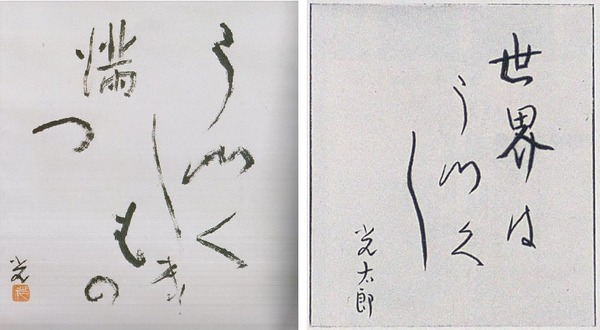 うつく
しきもの
満つ
光
世界は
うつく
し
光太郎